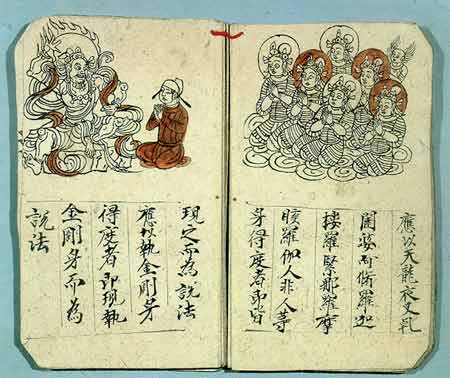 應以天龍夜叉乹
闥婆阿修羅迦
樓羅緊那羅摩
睺羅伽人非人等
身得度者即皆
現之而為說法
應以執金剛身
得度者即現執
金剛身而為
說法